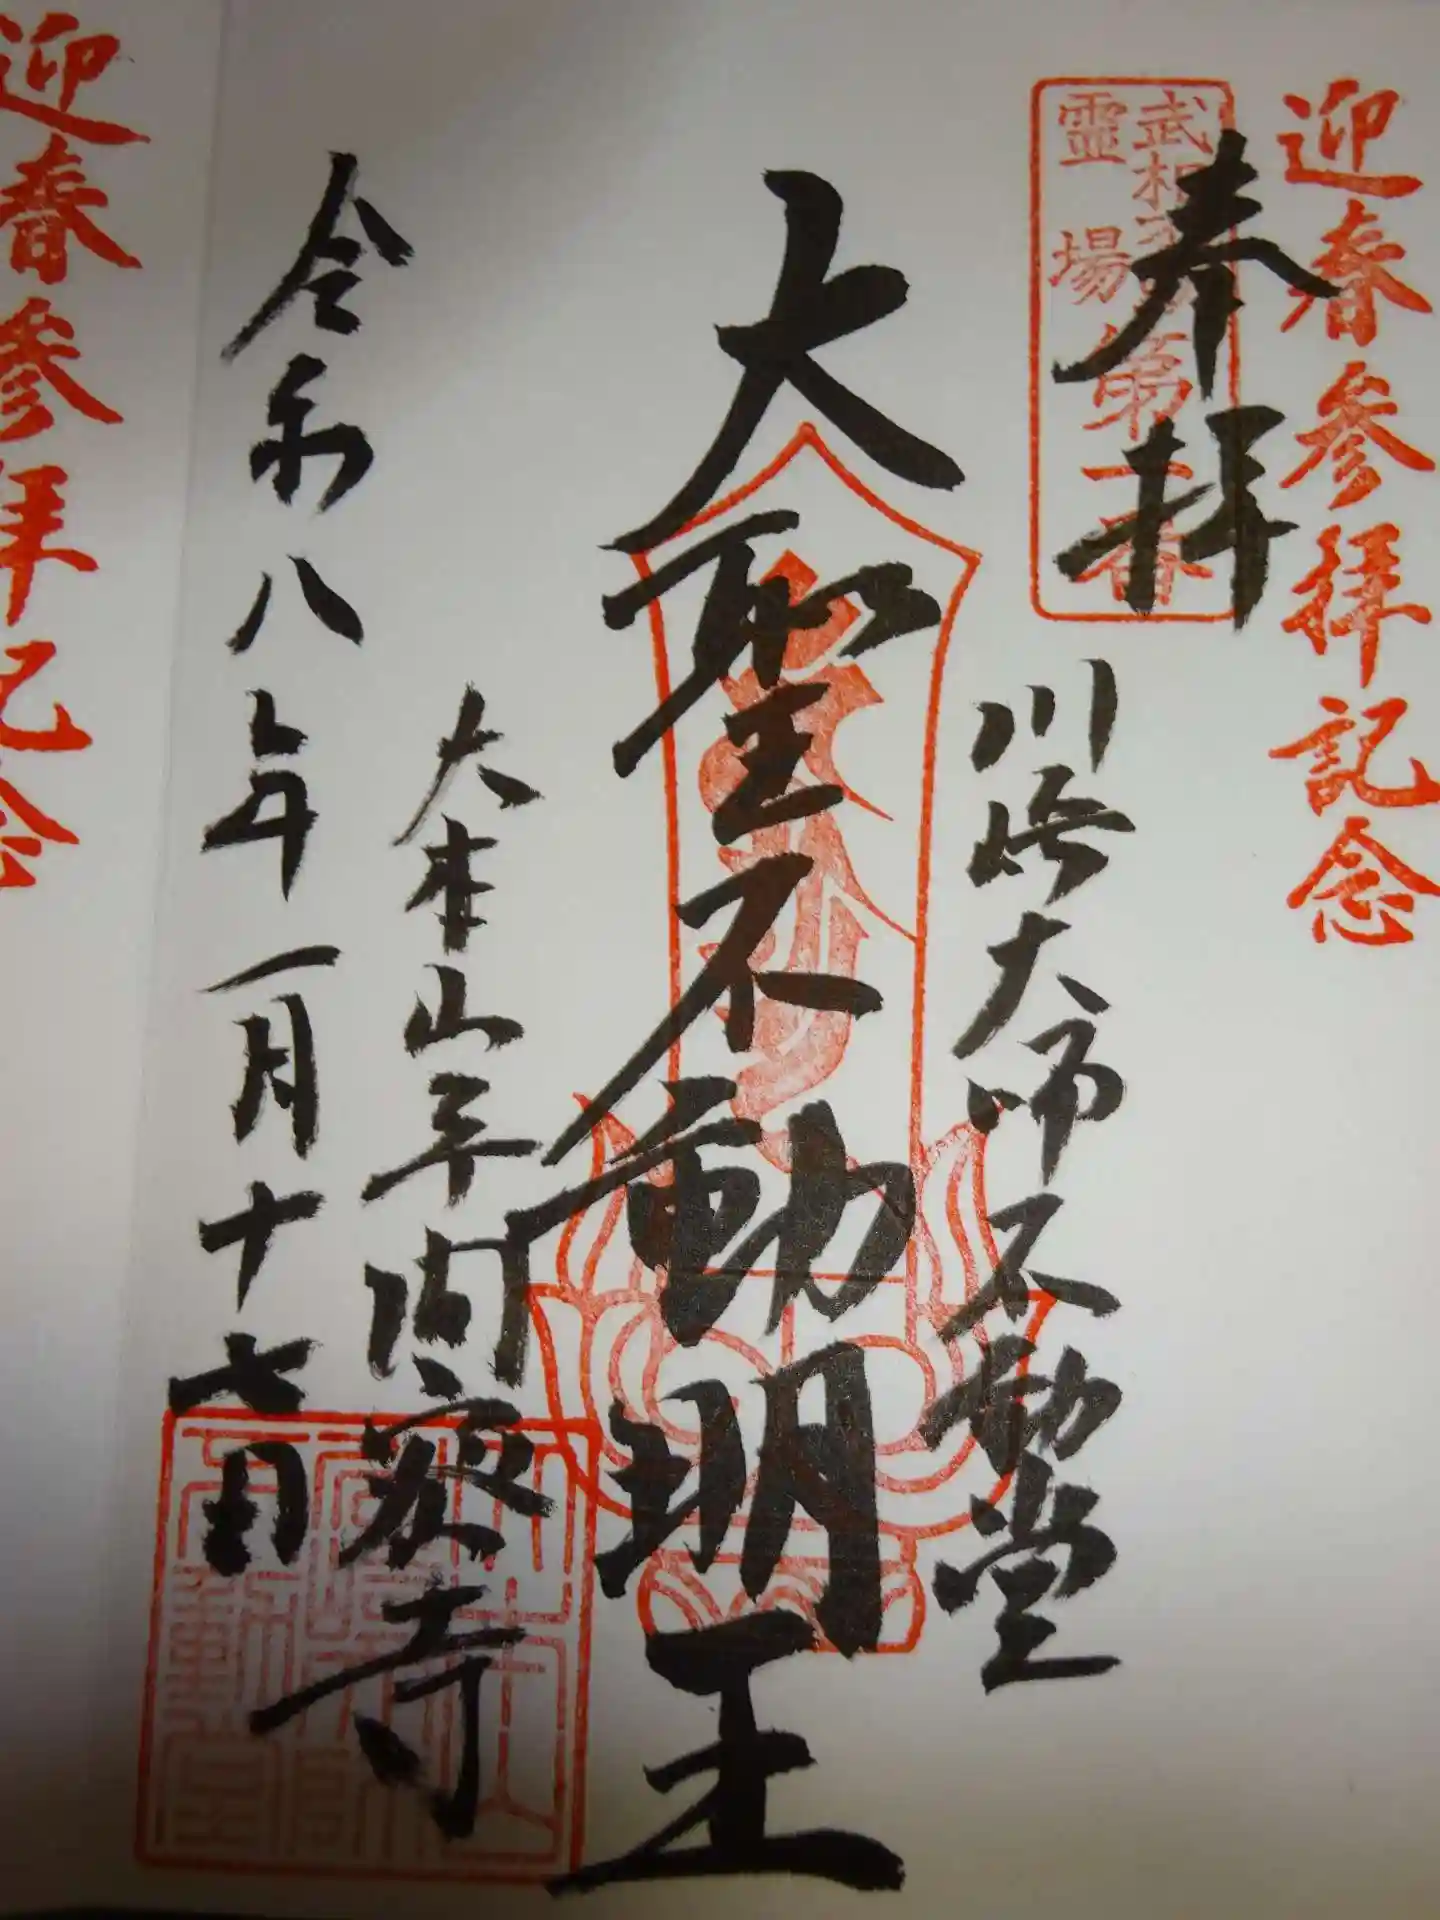 迎春参拝記念
奉拝
武相不動
靈場
第一番
川崎大師不動堂
大聖不動明王
大本山平间密寺
令和八年一月十七日
迎春参拝記念